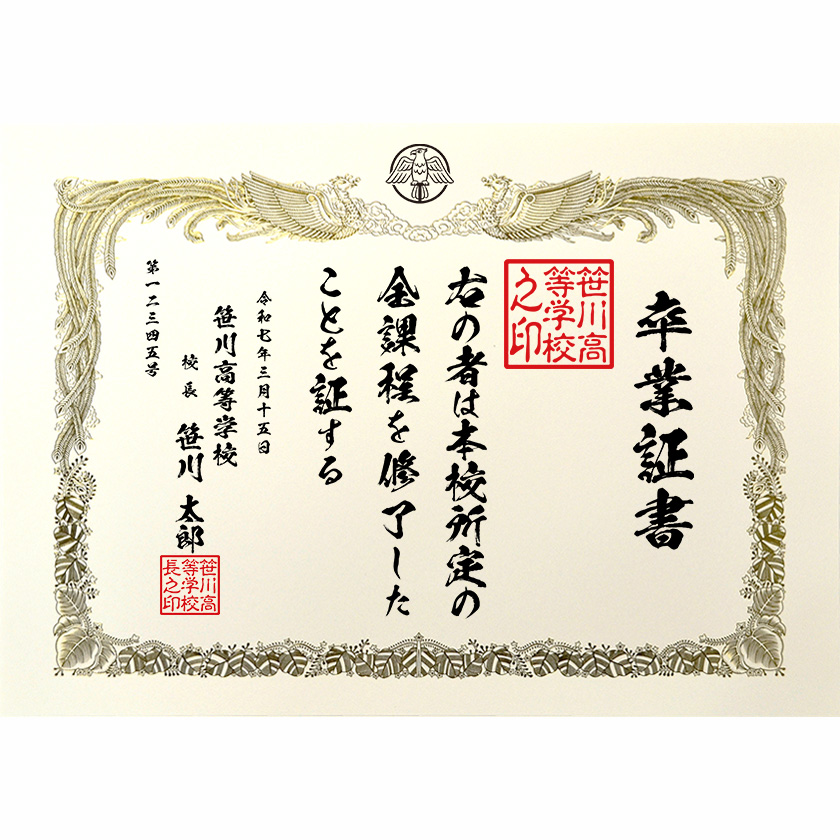 卒業証書
笹川高等学校之印
右の者は本校所定の
全課程を修了した
ことを証する
令和七年三月十五日
笹川高等学校
校長 笹川 太郎
笹川高等学校長之印
第一二三四五号